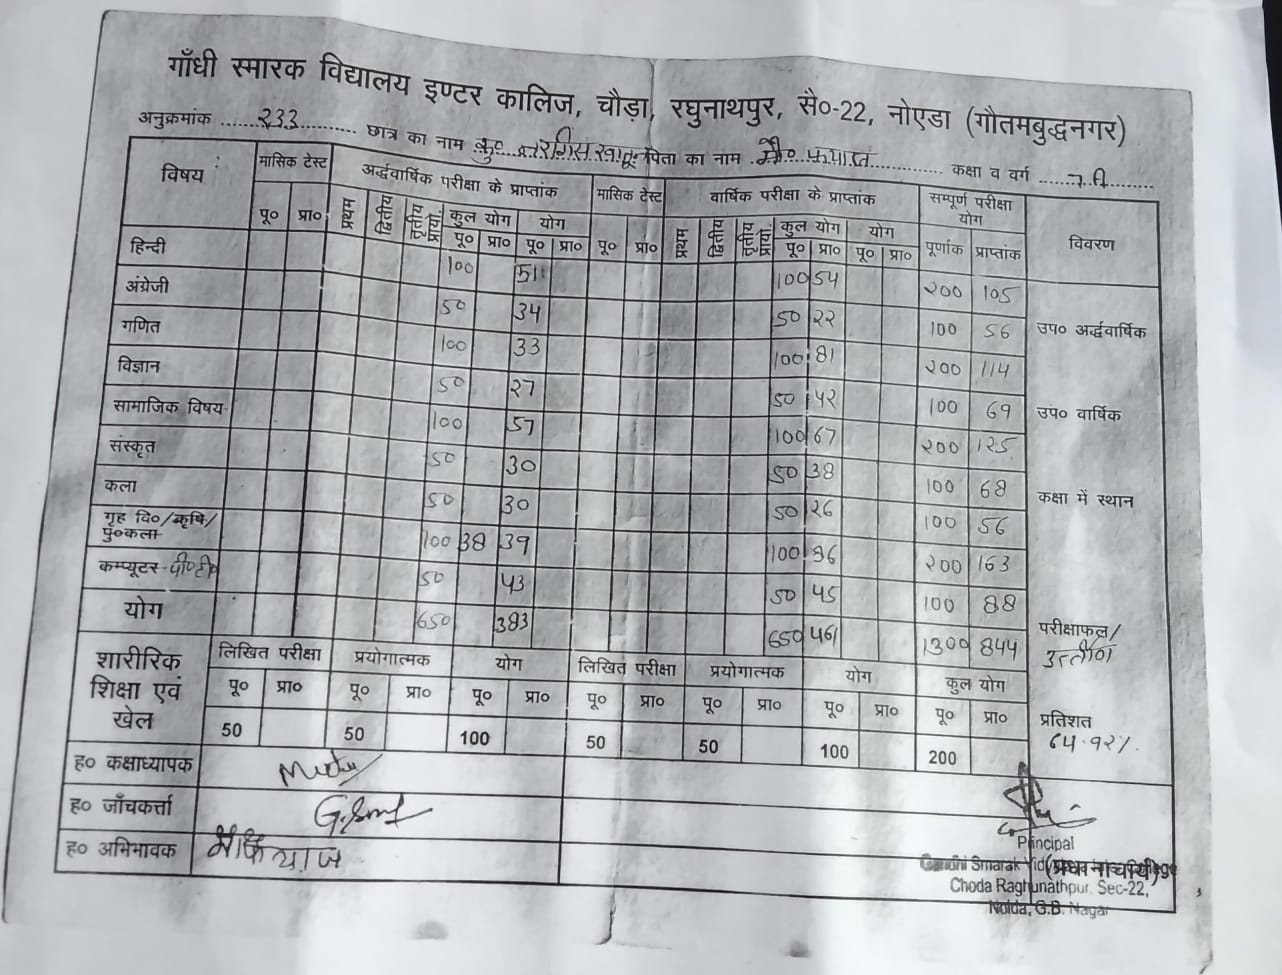 गाँधी स्मारक विद्यालय इण्टर कालिज, चौड़ा, रघुनाथपुर, सै०-22, नोएडा (गौतमबुद्धनगर)
अनुक्रमांक २33 छात्र का नाम कु० नरगिस खातून पिता का नाम मौ० कक्षा व वर्ग
विषय मासिक टेस्ट अर्द्धवार्षिक परीक्षा के प्राप्तांक मासिक टेस्ट वार्षिक परीक्षा के प्राप्तांक सम्पूर्ण परीक्षा योग विवरण
पू० प्रा० प्रथम द्वितीय तृतीय प्रायो. कुल योग योग पू० प्रा० प्रथम द्वितीय तृतीय प्रायो. कुल योग योग पूर्णांक प्राप्तांक
पू० प्रा० पू० प्रा० पू० प्रा० पू० प्रा०
हिन्दी 100 51 100 54 २00 105
अंग्रेजी 50 34 50 २२ 100 56 उप० अर्द्धवार्षिक
गणित 100 33 100 81 २00 114
विज्ञान 50 २7 50 42 100 69 उप० वार्षिक
सामाजिक विषय 100 57 100 67 २00 125
संस्कृत 50 30 50 38 100 68 कक्षा में स्थान
कला 50 30 50 २6 100 56
गृह वि०/कृषि/ पु०कला 100 38 39 100 86 २00 163
कम्प्यूटर पी०टी० 50 43 50 45 100 88
योग 650 383 650 461 1300 844 परीक्षाफल/ उत्तीर्ण
शारीरिक शिक्षा एवं खेल लिखित परीक्षा प्रयोगात्मक योग लिखित परीक्षा प्रयोगात्मक योग कुल योग
पू० प्रा० पू० प्रा० पू० प्रा० पू० प्रा० पू० प्रा० पू० प्रा० पू० प्रा० प्रतिशत
50 50 100 50 50 100 200 ६4.९२%
ह० कक्षाध्यापक
ह० जाँचकर्त्ता
ह० अभिभावक
Principal
(प्रधानाचार्य)
Gandhi Smarak
Choda Raghunathpur, Sec-22,
Noida, G.B. Nagar